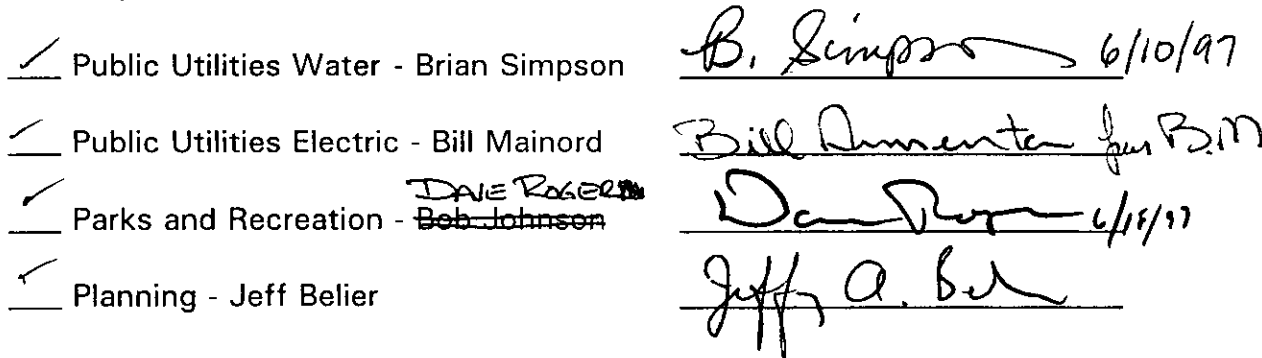 ✓ Public Utilities Water - Brian Simpson B. Simpson 6/10/97
✓ Public Utilities Electric - Bill Mainord Bill for B.M
DAVE ROGERS
✓ Parks and Recreation - Bob Johnson Dave Roger 6/18/97
✓ Planning - Jeff Belier Jeffry A. Bel